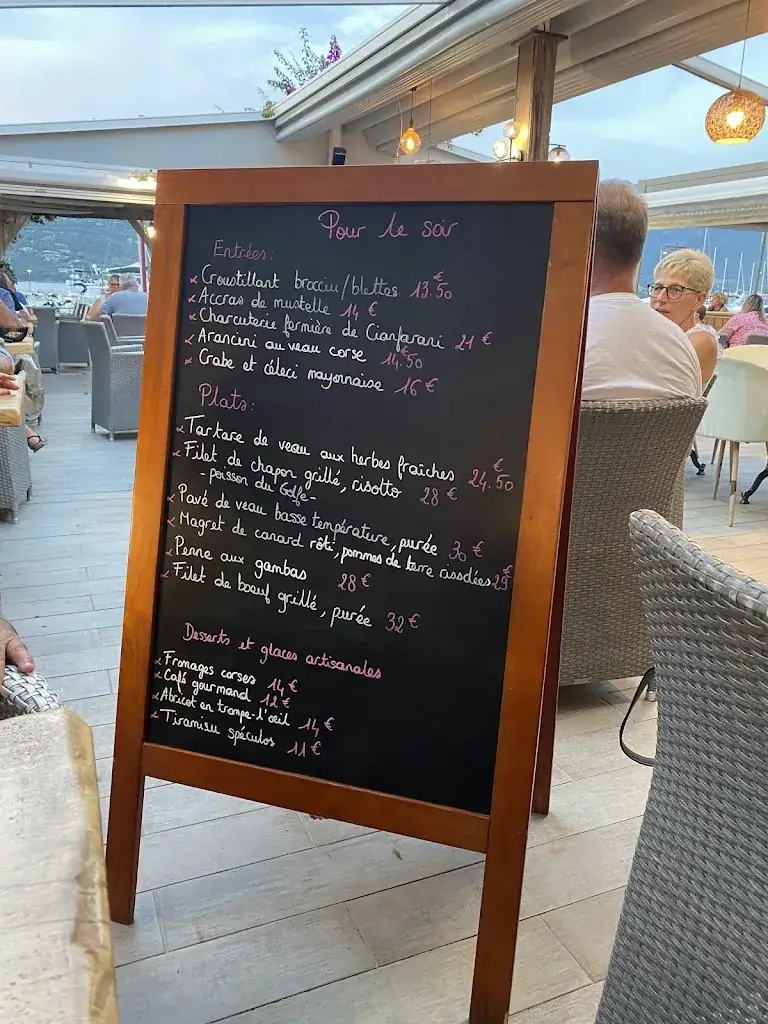 Pour le soir
Entrées:
x Croustillant brocciu/blettes 13.50 €
x Accras de mustelle 14 €
x Charcuterie fermière de Cianfarani 21 €
x Arancini au veau corse 14.50 €
x Crabe et céleci mayonnaise 16 €
Plats:
x Tartare de veau aux herbes fraîches 24.50 €
x Filet de chapon grillé, risotto 28 €
- poisson du Golfe -
x Pavé de veau basse température, purée 30 €
x Magret de canard rôti, pommes de terre rissolées 29 €
x Penne aux gambas 28 €
x Filet de boeuf grillé, purée 32 €
Desserts et glaces artisanales
x Fromages corses 14 €
x Café gourmand 12 €
x Abricot en trompe-l'oeil 14 €
x Tiramisu spéculos 11 €